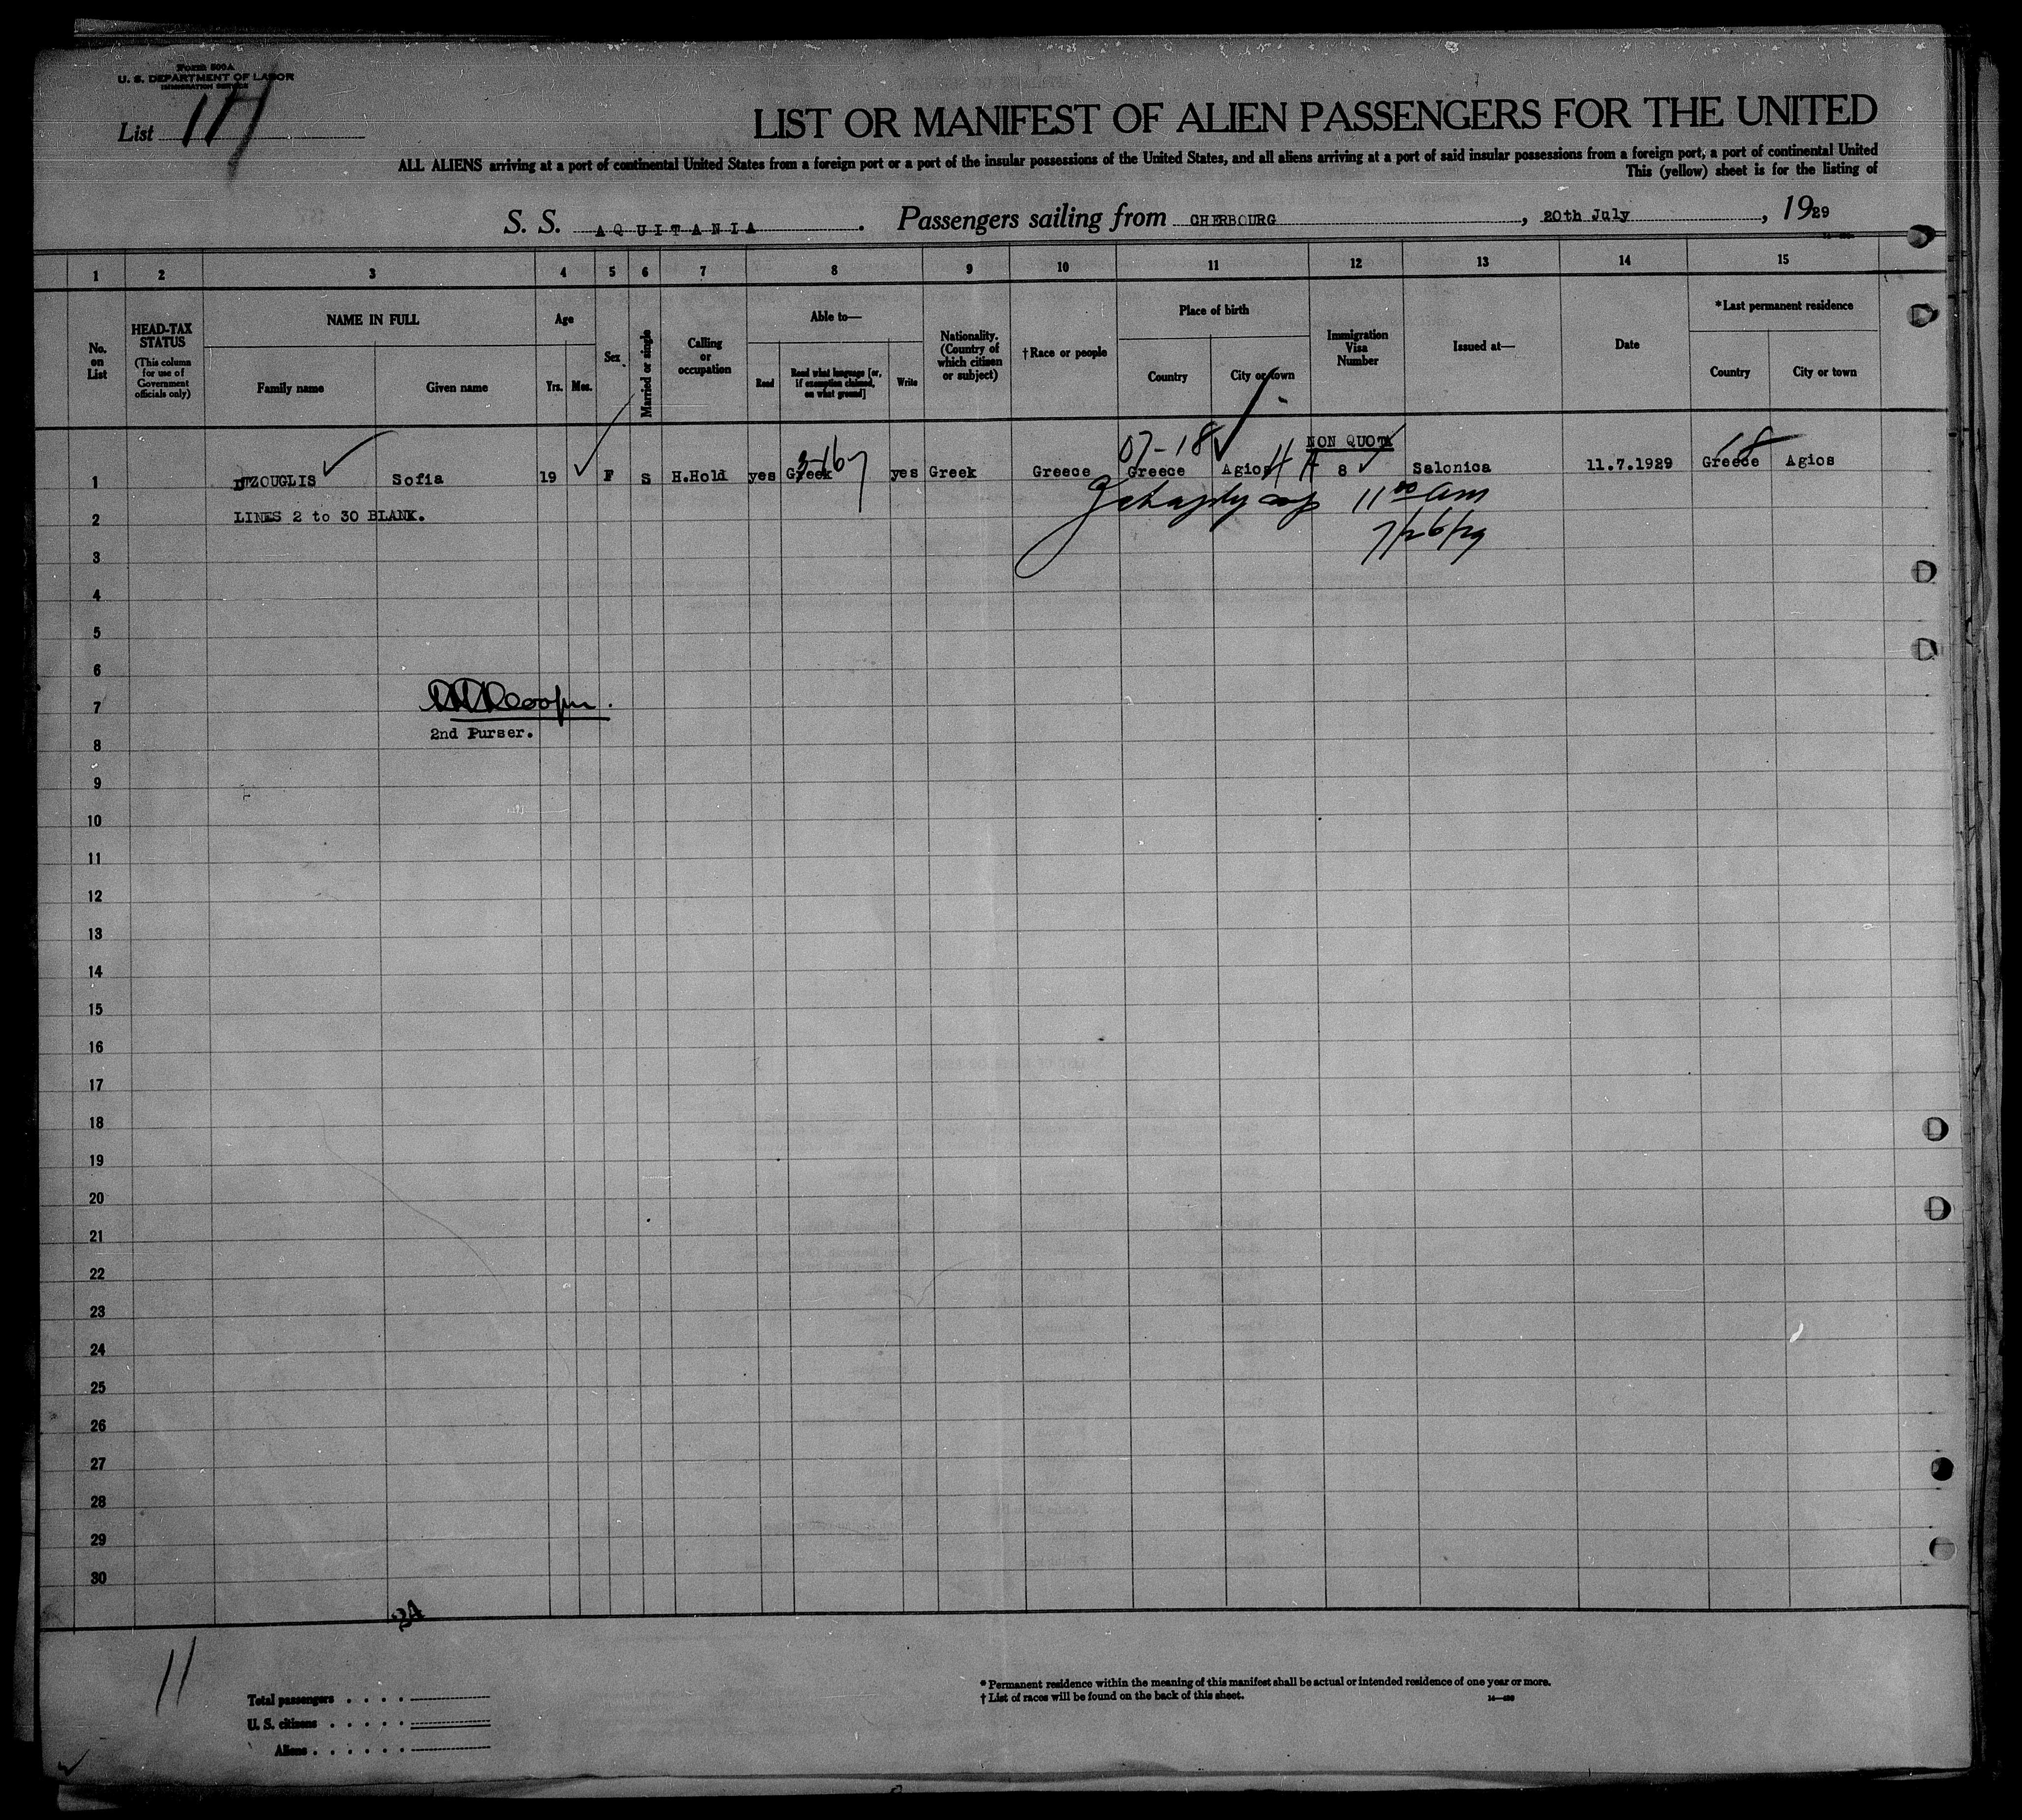 Form 500A
U. S. DEPARTMENT OF LABOR
IMMIGRATION SERVICE
List 117
LIST OR MANIFEST OF ALIEN PASSENGERS FOR THE UNITED
ALL ALIENS arriving at a port of continental United States from a foreign port or a port of the insular possessions of the United States, and all aliens arriving at a port of said insular possessions from a foreign port, a port of continental United
This (yellow) sheet is for the listing of
S. S. AQUITANIA. Passengers sailing from CHERBOURG, 20th July, 1929
1 2 3 4 5 6 7 8 9 10 11 12 13 14 15
No. on List
HEAD-TAX STATUS
(This column for use of Government officials only)
NAME IN FULL
Family name
Given name
Age
Yrs. Mos.
Sex
Married or single
Calling or occupation
Able to—
Read
Read what language [or, if exemption claimed, on what ground]
Write
Nationality. (Country of which citizen or subject)
†Race or people
Place of birth
Country
City or town
Immigration Visa Number
Issued at—
Date
*Last permanent residence
Country
City or town
07-18 NON QUOTA 18
1 TZOUGLIS Sofia 19 F S H.Hold yes Greek yes Greek Greece Greece Agios 8 Salonica 11.7.1929 Greece Agios
11 00 am
2 LINES 2 to 30 BLANK.
7/26/29
3
4
5
6
7
2nd Purser.
8
9
10
11
12
13
14
15
16
17
18
19
20
21
22
23
24
25
26
27
28
29
30
34
11
Total passengers . . . .
U. S. citizens . . . . .
Aliens . . . . . .
* Permanent residence within the meaning of this manifest shall be actual or intended residence of one year or more.
† List of races will be found on the back of this sheet.